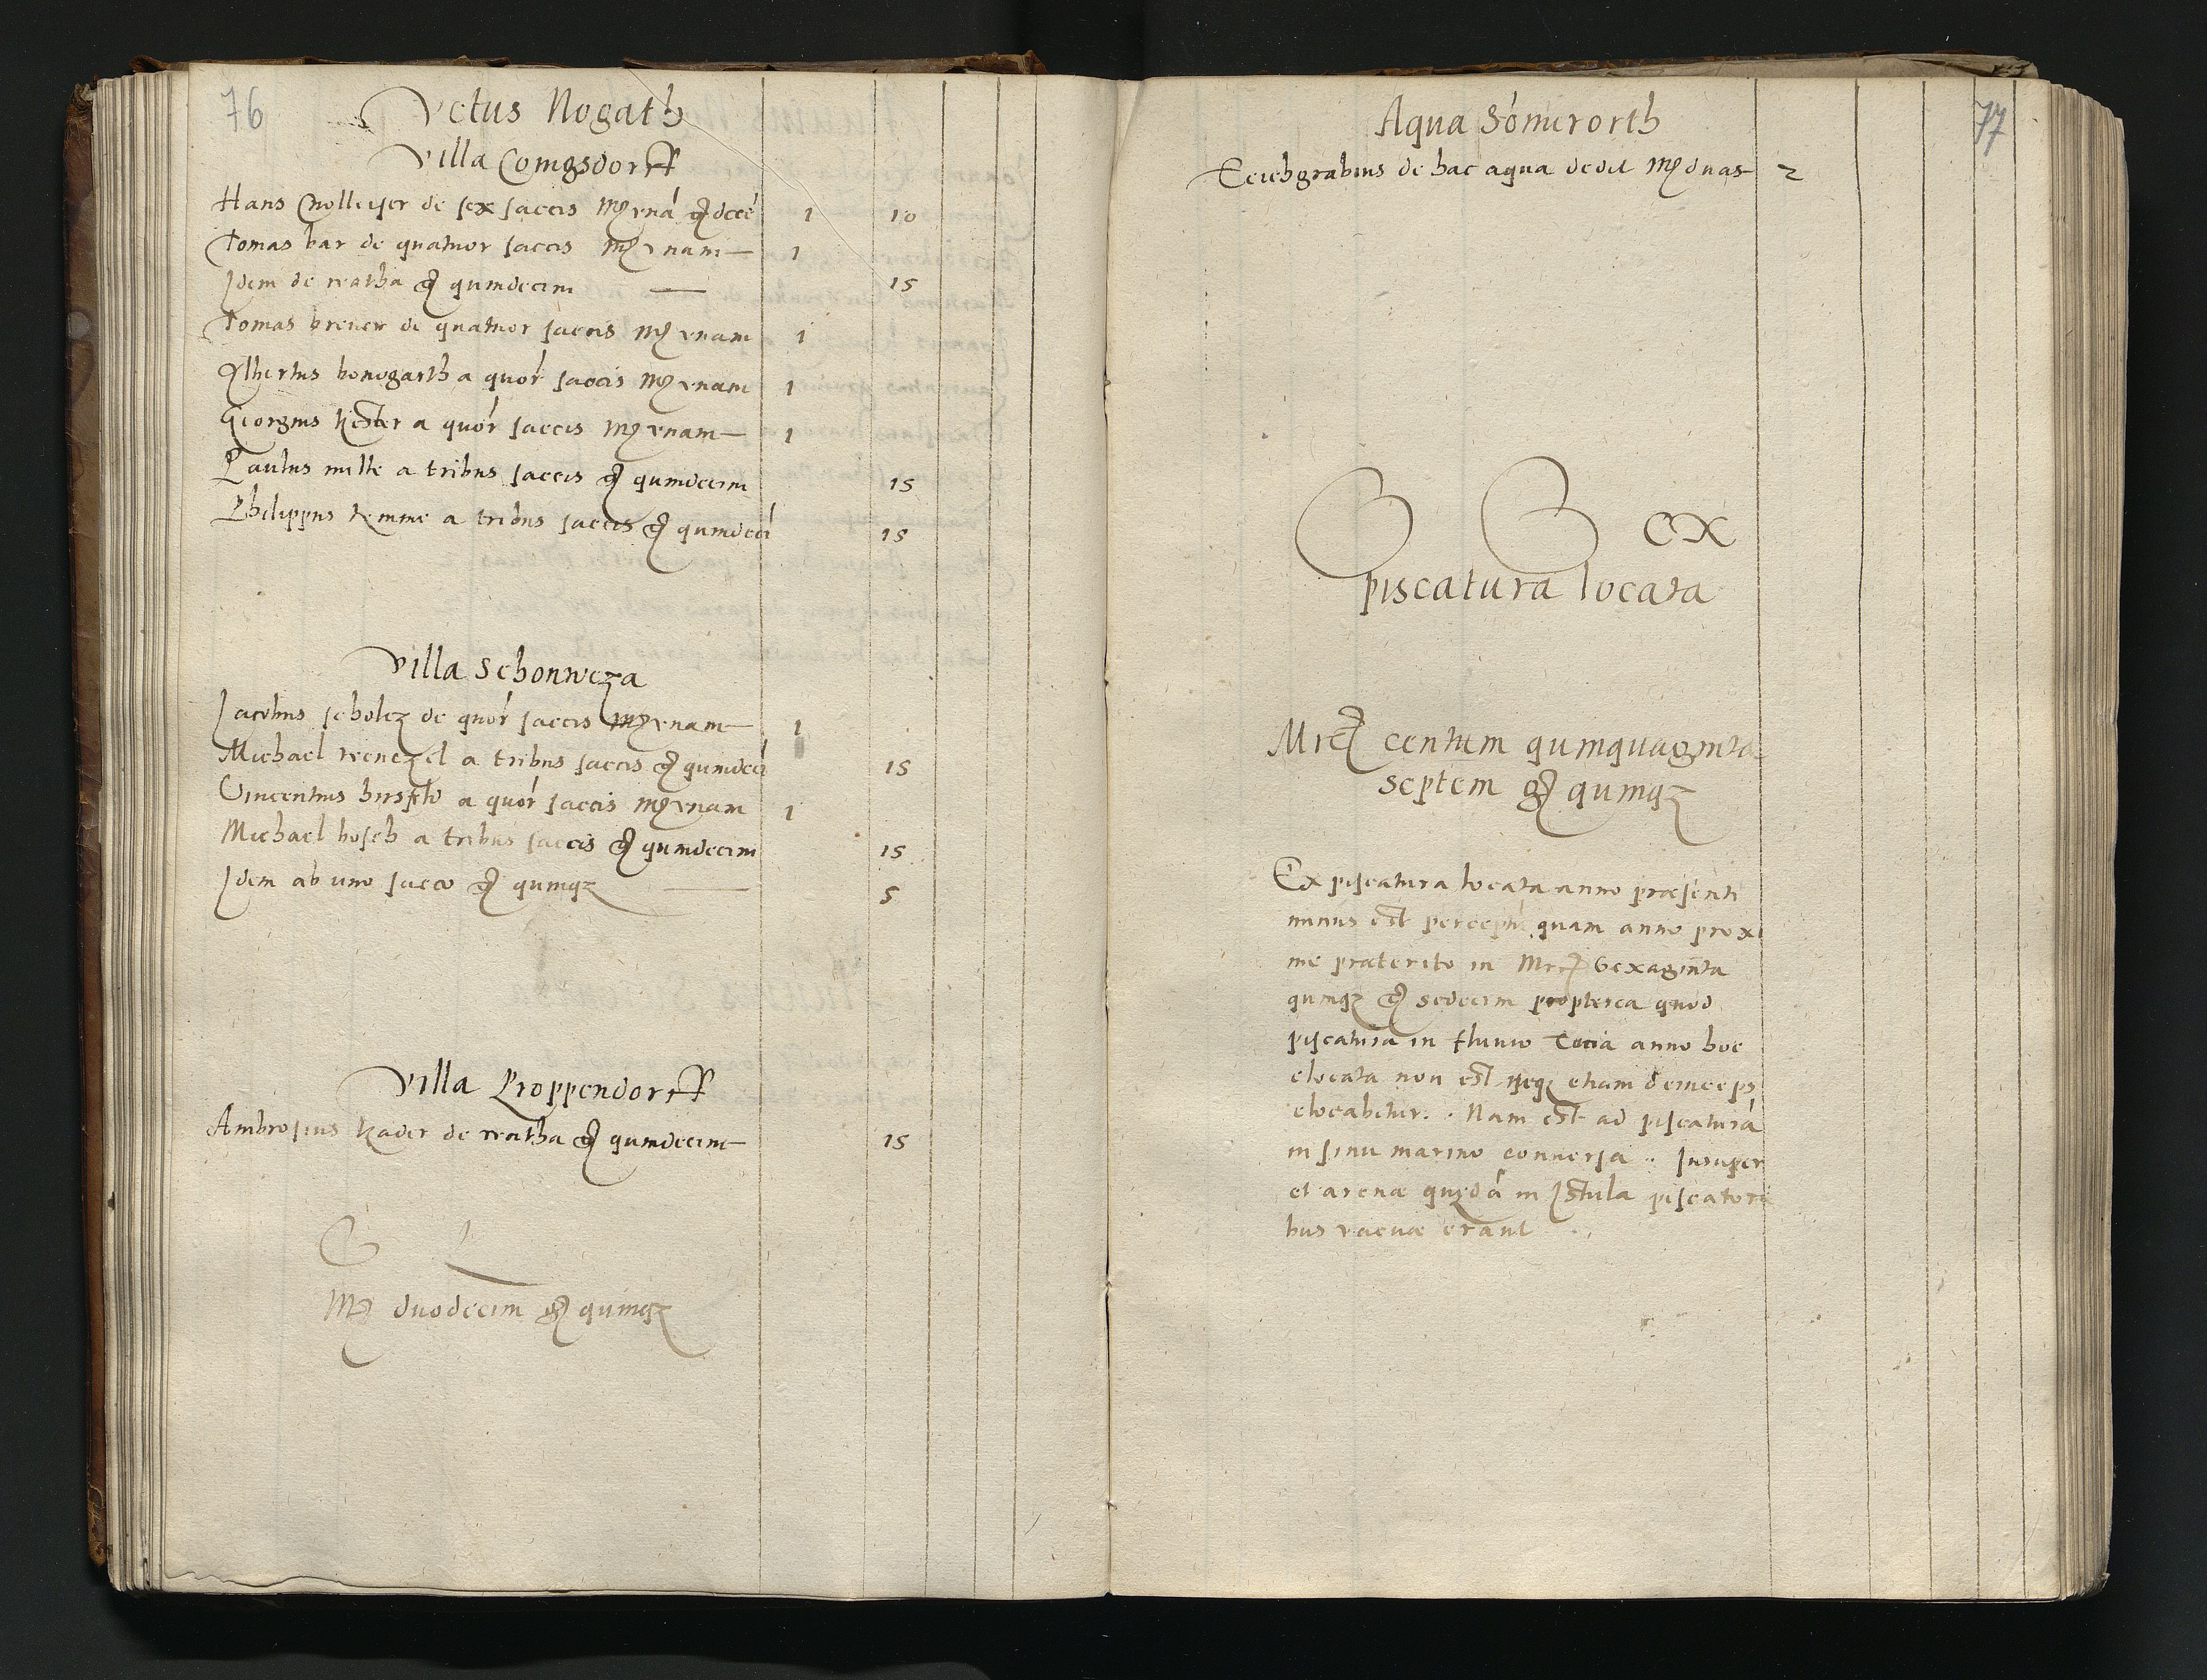 76
Vetus Nogath
Villa Comgsdorff
Hans Crolleyer de sex saccis mr̃ vná gr̃ decé 1 10
Tomas bar de quatuor saccis mr̃ vnam 1
Idem de watha gr̃ quindecim 15
Tomas breuer de quatuor saccis mr̃ vnam 1
Albertus bonogarth a quór saccis mr̃ vnam 1
Georgius Kester a quór saccis mr̃ vnam 1
Paulus mille a tribus saccis gr̃ quindecim 15
Philippus Kemme a tribus saccis gr̃ quindeci 15
Villa Schonweza
Jacobus scholcz de quór saccis mr̃ vnam 1
Michael wenczel a tribus saccis gr̃ quindeci 15
Vincentius hirsfeld a quór saccis mr̃ vnam 1
Michael bosch a tribus saccis gr̃ quindecim 15
Idem ab uno sacco gr̃ quinqz 5
Villa Proppendorff
Ambrosius Kader de watha gr̃ quindecim 15
mr̃ duodecim gr̃ quinqz
77
Aqua Sómerorth
Teichgrabius de hac aqua dedit mr̃ duas 2
ex
piscatura locata
Mrc̃ centum quinquaginta
septem gr̃ quinqz
Ex piscatura locata anno præsenti
minus est perceptú quam anno proxi
me præterito in Mrc̃ sexaginta
quinqz gr̃ sedecim propterea quod
piscatura in fluuio anno hoc
elocata non est neqz etiam deinceps
elocabitur. Nam est ad piscaturá
in sinu marino conuersa. Insuper
et arenæ quædá in Istula piscatori
bus vacuæ erant